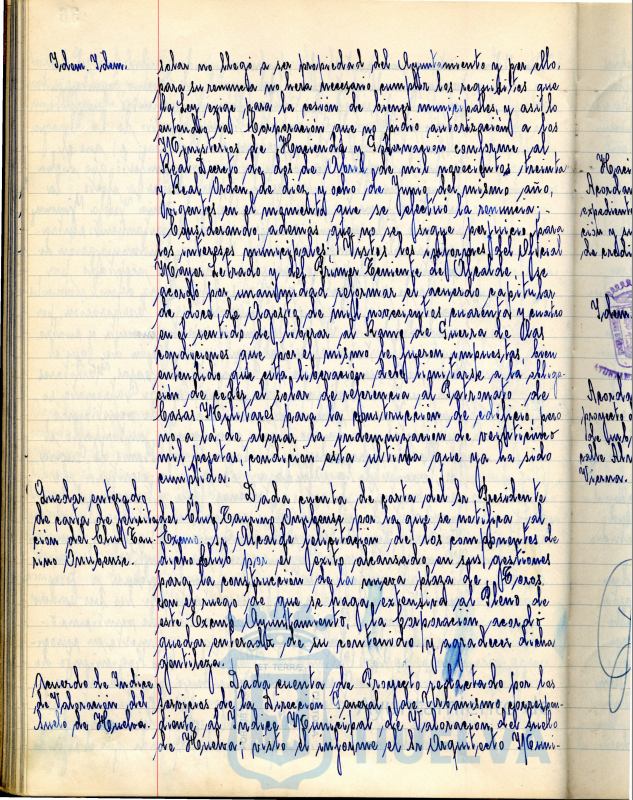 Idem. Idem.
solar no llegó a ser propiedad del Ayuntamiento y por ello,
para su renuncia no será necesario cumplir los requisitos que
la Ley exige para la cesión de bienes municipales, y así lo
entendió la Corporación que no pidió autorización a los
Ministerios de Hacienda y Gobernación conforme al
Real Decreto de dos de Abril de mil novecientos treinta
y Real Orden de diez y ocho de Junio del mismo año,
vigentes en el momento que se efectuó la renuncia;
Considerando, además que no se sigue perjuicio para
los intereses municipales; Vistos los informes del Oficial
Mayor Letrado y del Primer Teniente de Alcalde se
acordó por unanimidad reformar el acuerdo capitular
de doce de Agosto de mil novecientos cuarenta y cuatro
en el sentido de liberar al Ramo de Guerra de las
condiciones que por el mismo le fueron impuestas, bien
entendido que esta liberación debe limitarse a la obliga-
ción de ceder el solar de referencia al Patronato de
Casas Militares para la construcción de edificio, pero
no a la de abonar la indemnización de veinticinco
mil pesetas, condición esta última que ya ha sido
cumplida.
Quedar enterado
de carta de felicita-
ción del Club Tau-
rino Onubense.
Dada cuenta de carta del Sr Presidente
del Club Taurino Onubense por la que se notifica al
Excmo. Sr Alcalde felicitación de los componentes de
dicho Club por el éxito alcanzado en sus gestiones
para la construcción de la nueva plaza de Toros,
con el ruego de que se haga extensiva al Pleno de
este Excmo Ayuntamiento, la Corporación acordó
quedar enterada de su contenido y agradecer dicha
gentileza.
Acuerdo de Indice
de Valoración del
Suelo de Huelva.
Dada cuenta de Proyecto redactado por los
servicios de la Dirección General de Urbanismo, correspon-
diente al Indice Municipal de Valoración del suelo
de Huelva; visto el informe el Sr Arquitecto Muni-
Haci
Acordar
expedient
ción y su
de crédi
Idem.
Acordar
proyecto
calle
Vienna.
ET TERRAE
HUELVA